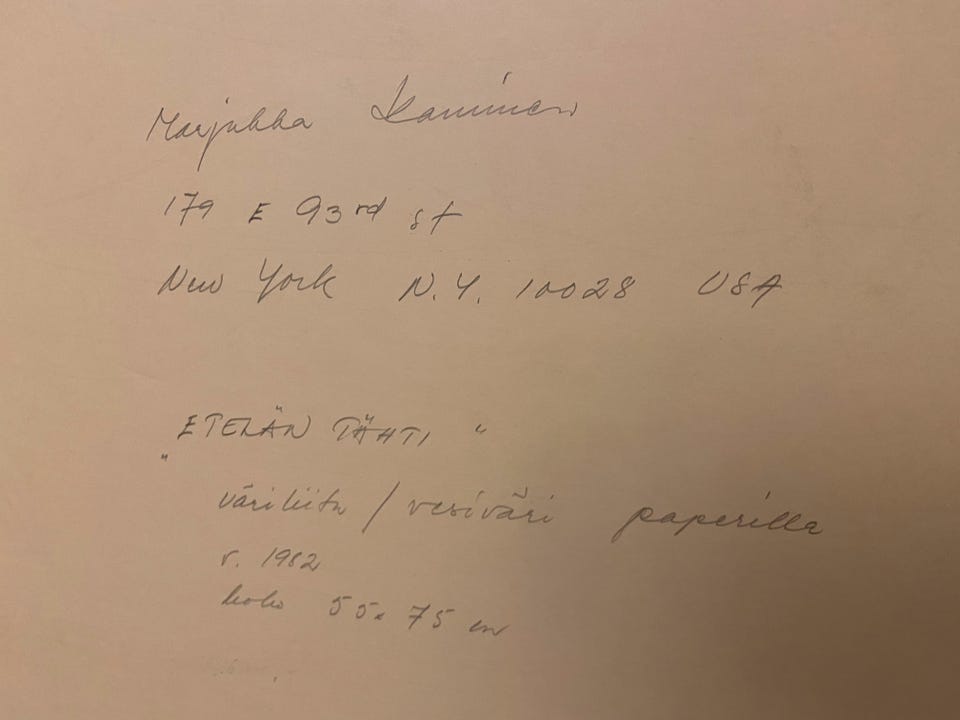 Marjukka Kaminen
179 E 93rd st
New York N.Y. 10028 USA
"ETELÄN TÄHTI"
väriliitu / vesiväri paperilla
v. 1982
koko 55x75 cm